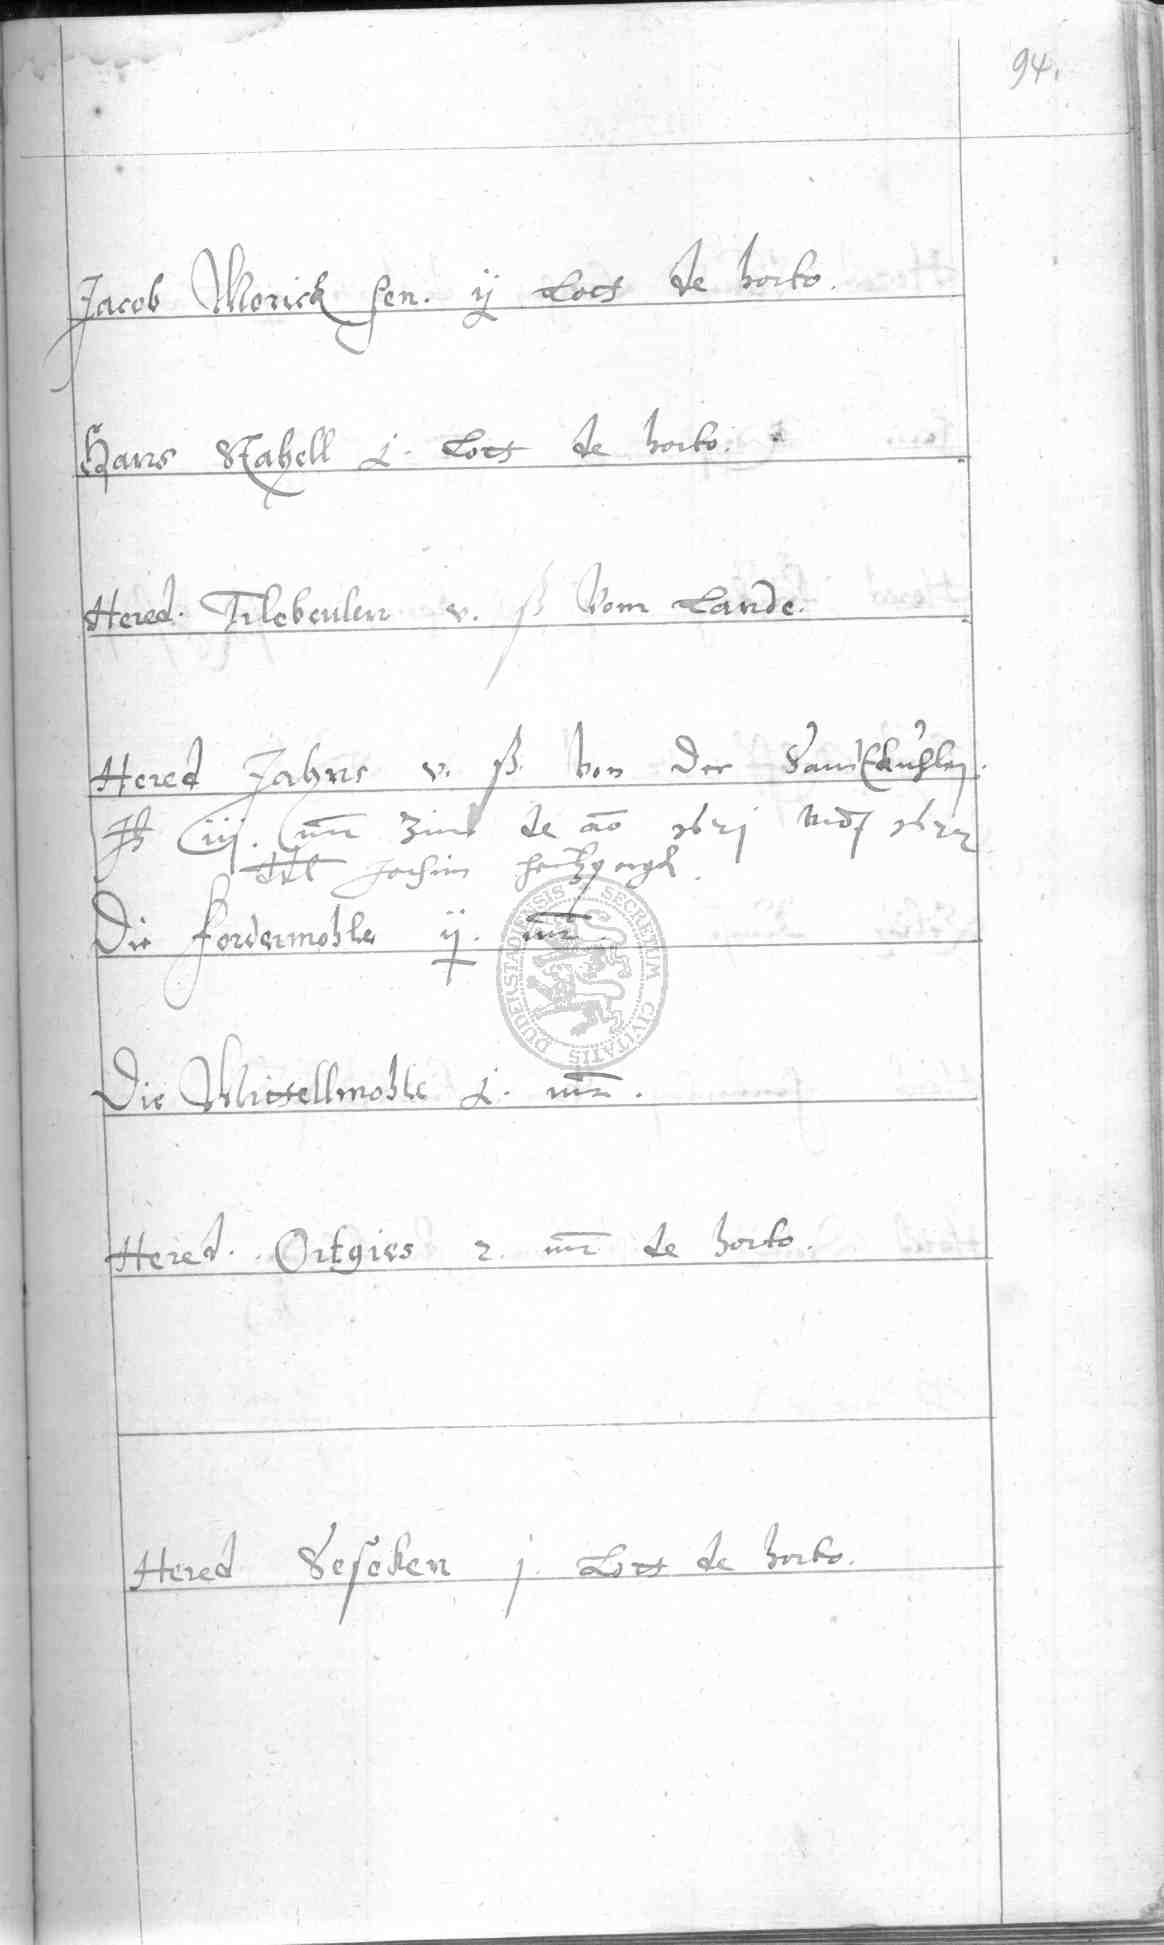 94.
Jacob Morick sen. ij Lott de horto.
Hans Stahell j. Lott de horto.
Hered. Tilebeulen v. ß Vom Lande.
Hered Jahns v. ß. von der Sandtkuhlen.
iij. mr Zins de ao 1621 vnd 1622
Jochim
Die fordermohle ij. mr.
Die Mittellmohle j. mr.
Hered. Ortgies 2. mr de horto.
Hered Seseken j. Lott de horto.
SECRETUM CIVITATIS DUDERSTADIENSIS